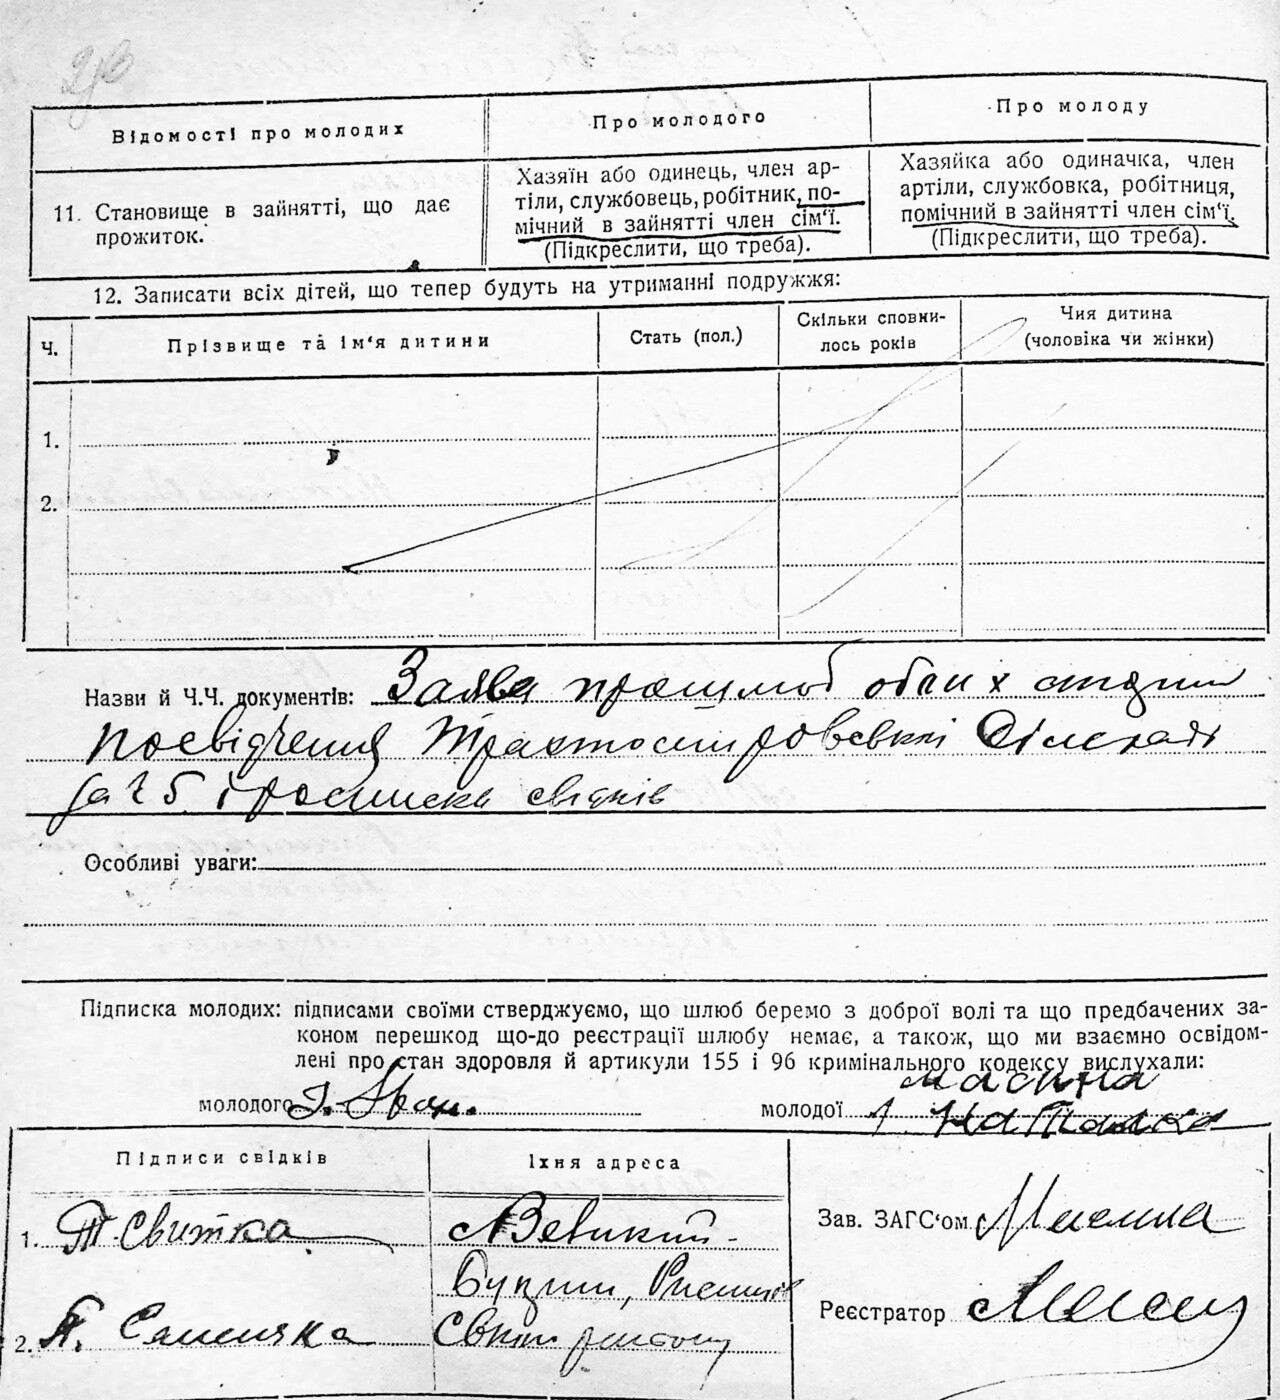 Відомості про молодих
Про молодого
Про молоду
11. Становище в зайнятті, що дає
прожиток.
Хазяїн або одинець, член ар-
тілі, службовець, робітник, по-
мічний в зайнятті член сім'ї.
(Підкреслити, що треба).
Хазяйка або одиначка, член
артіли, службовка, робітниця,
помічний в зайнятті член сім'ї.
(Підкреслити, що треба).
12. Записати всіх дітей, що тепер будуть на утриманні подружжя:
Ч.
Прізвище та ім'я дитини
Стать (пол.)
Скільки сповни-
лось років
Чия дитина
(чоловіка чи жінки)
1.
2.
Назви й Ч.Ч. документів: Заява обоих сторін
посвідчення Сільради
за 25 і росписка свідків
Особливі уваги:
Підписка молодих: підписами своїми стверджуємо, що шлюб беремо з доброї волі та що предбачених за-
коном перешкод що-до реєстрації шлюбу немає, а також, що ми взаємно освідом-
лені про стан здоровля й артикули 155 і 96 кримінального кодексу вислухали:
молодого
молодої
Наталка
Підписи свідків
Їхня адреса
1. Т. Свитка
Великий
Букрин,
2. П.
району
Зав. ЗАГС'ом
Реєстратор